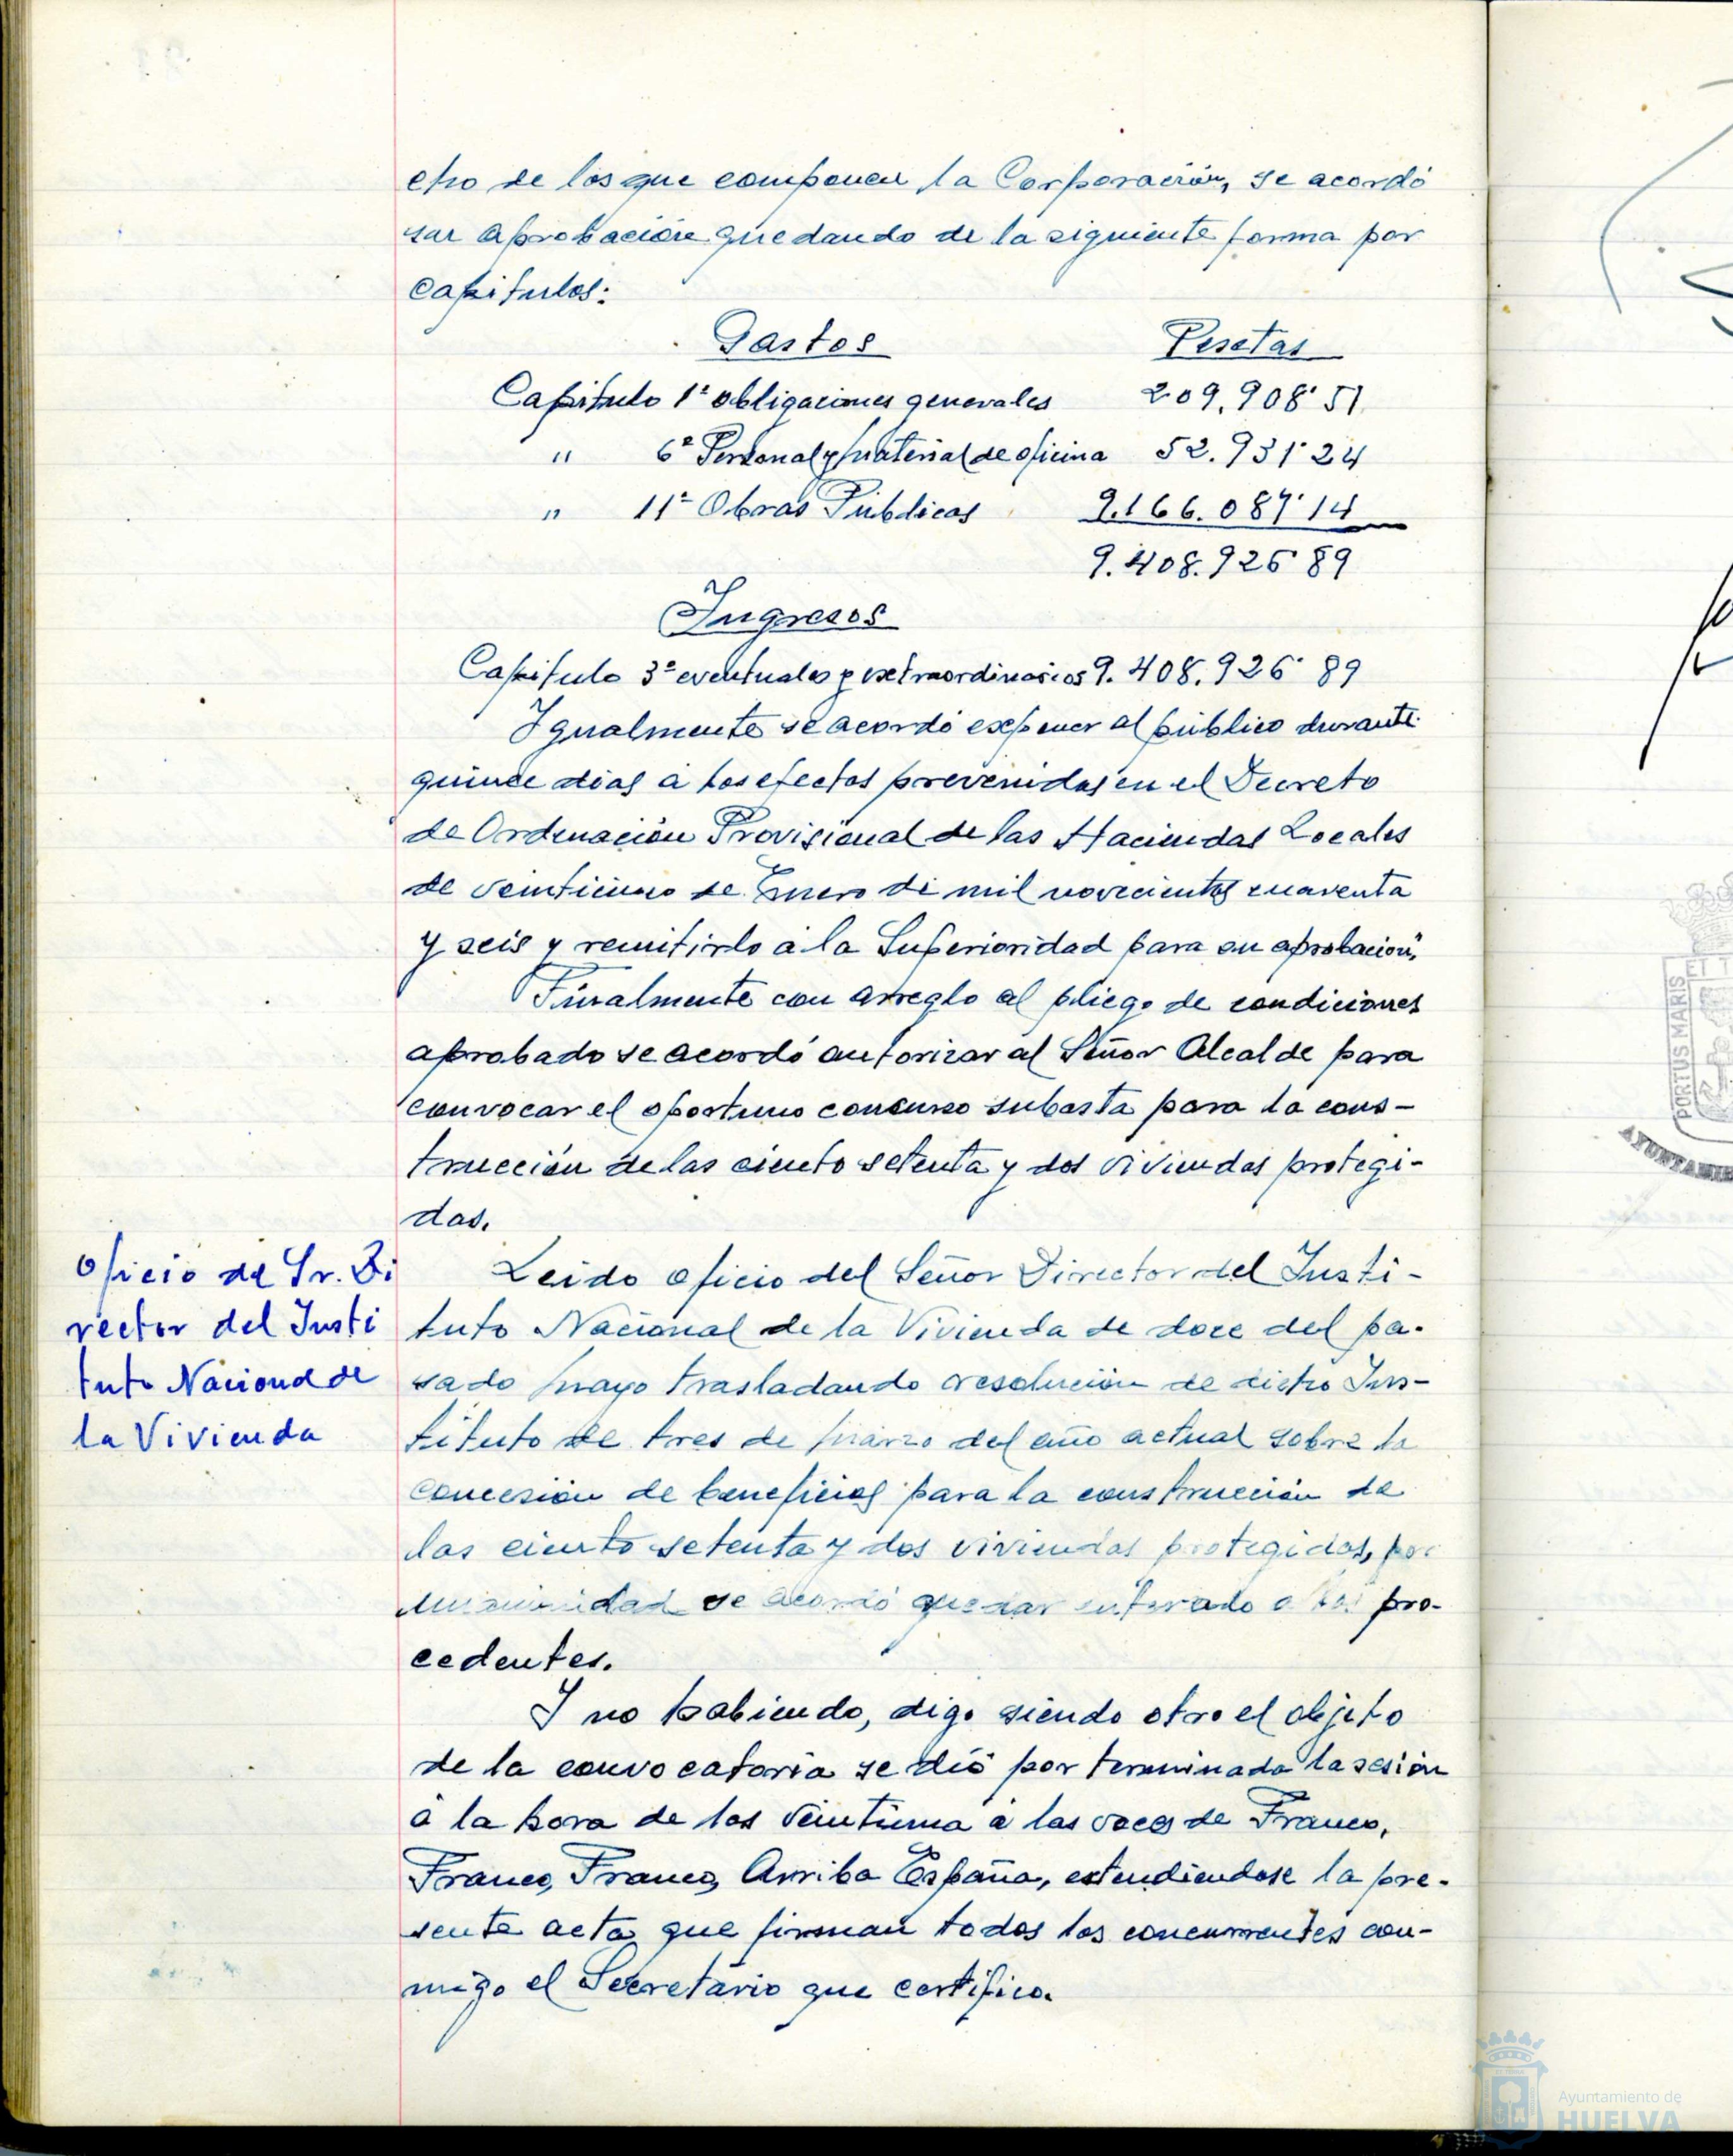 cho de los que componen la Corporación, se acordó
su aprobación quedando de la siguiente forma por
capitulos:
Gastos Pesetas
Capitulo 1º obligaciones generales 209.908'51
" 6º Personal y material de oficina 52.931'24
" 11º Obras Públicas 9.166.087'14
9.408.926'89
Ingresos
Capitulo 3º eventuales y extraordinarios 9.408.926'89
Igualmente se acordó exponer al público durante
quince dias a los efectos prevenidos en el Decreto
de Ordenación Provisional de las Haciendas Locales
de veinticinco de Enero de mil novecientos cuarenta
y seis y remitirlo a la Superioridad para su aprobación.
Finalmente con arreglo al pliego de condiciones
aprobado se acordó autorizar al Señor Alcalde para
convocar el oportuno concurso subasta para la cons-
trucción de las ciento setenta y dos viviendas protegi-
das.
Oficio de Sr. Di
rector del Insti
tuto Nacional de
la Vivienda
Leido oficio del Señor Director del Insti-
tuto Nacional de la Vivienda de doce del pa-
sado mayo trasladando resolución de dicho Ins-
tituto de tres de marzo del año actual sobre la
concesión de beneficios para la construcción de
las ciento setenta y dos viviendas protegidas, por
unanimidad se acordó quedar enterado a los pro-
cedentes.
Y no habiendo, digo siendo otro el objeto
de la convocatoria se dió por terminada la sesión
a la hora de las veintiuna a las voces de Franco,
Franco, Franco, Arriba España, extendiendose la pre-
sente acta que firman todos los concurrentes con-
migo el Secretario que certifico.
PORTUS MARIS
ET T
AYUNTAMIE
Ayuntamiento de
HUELVA